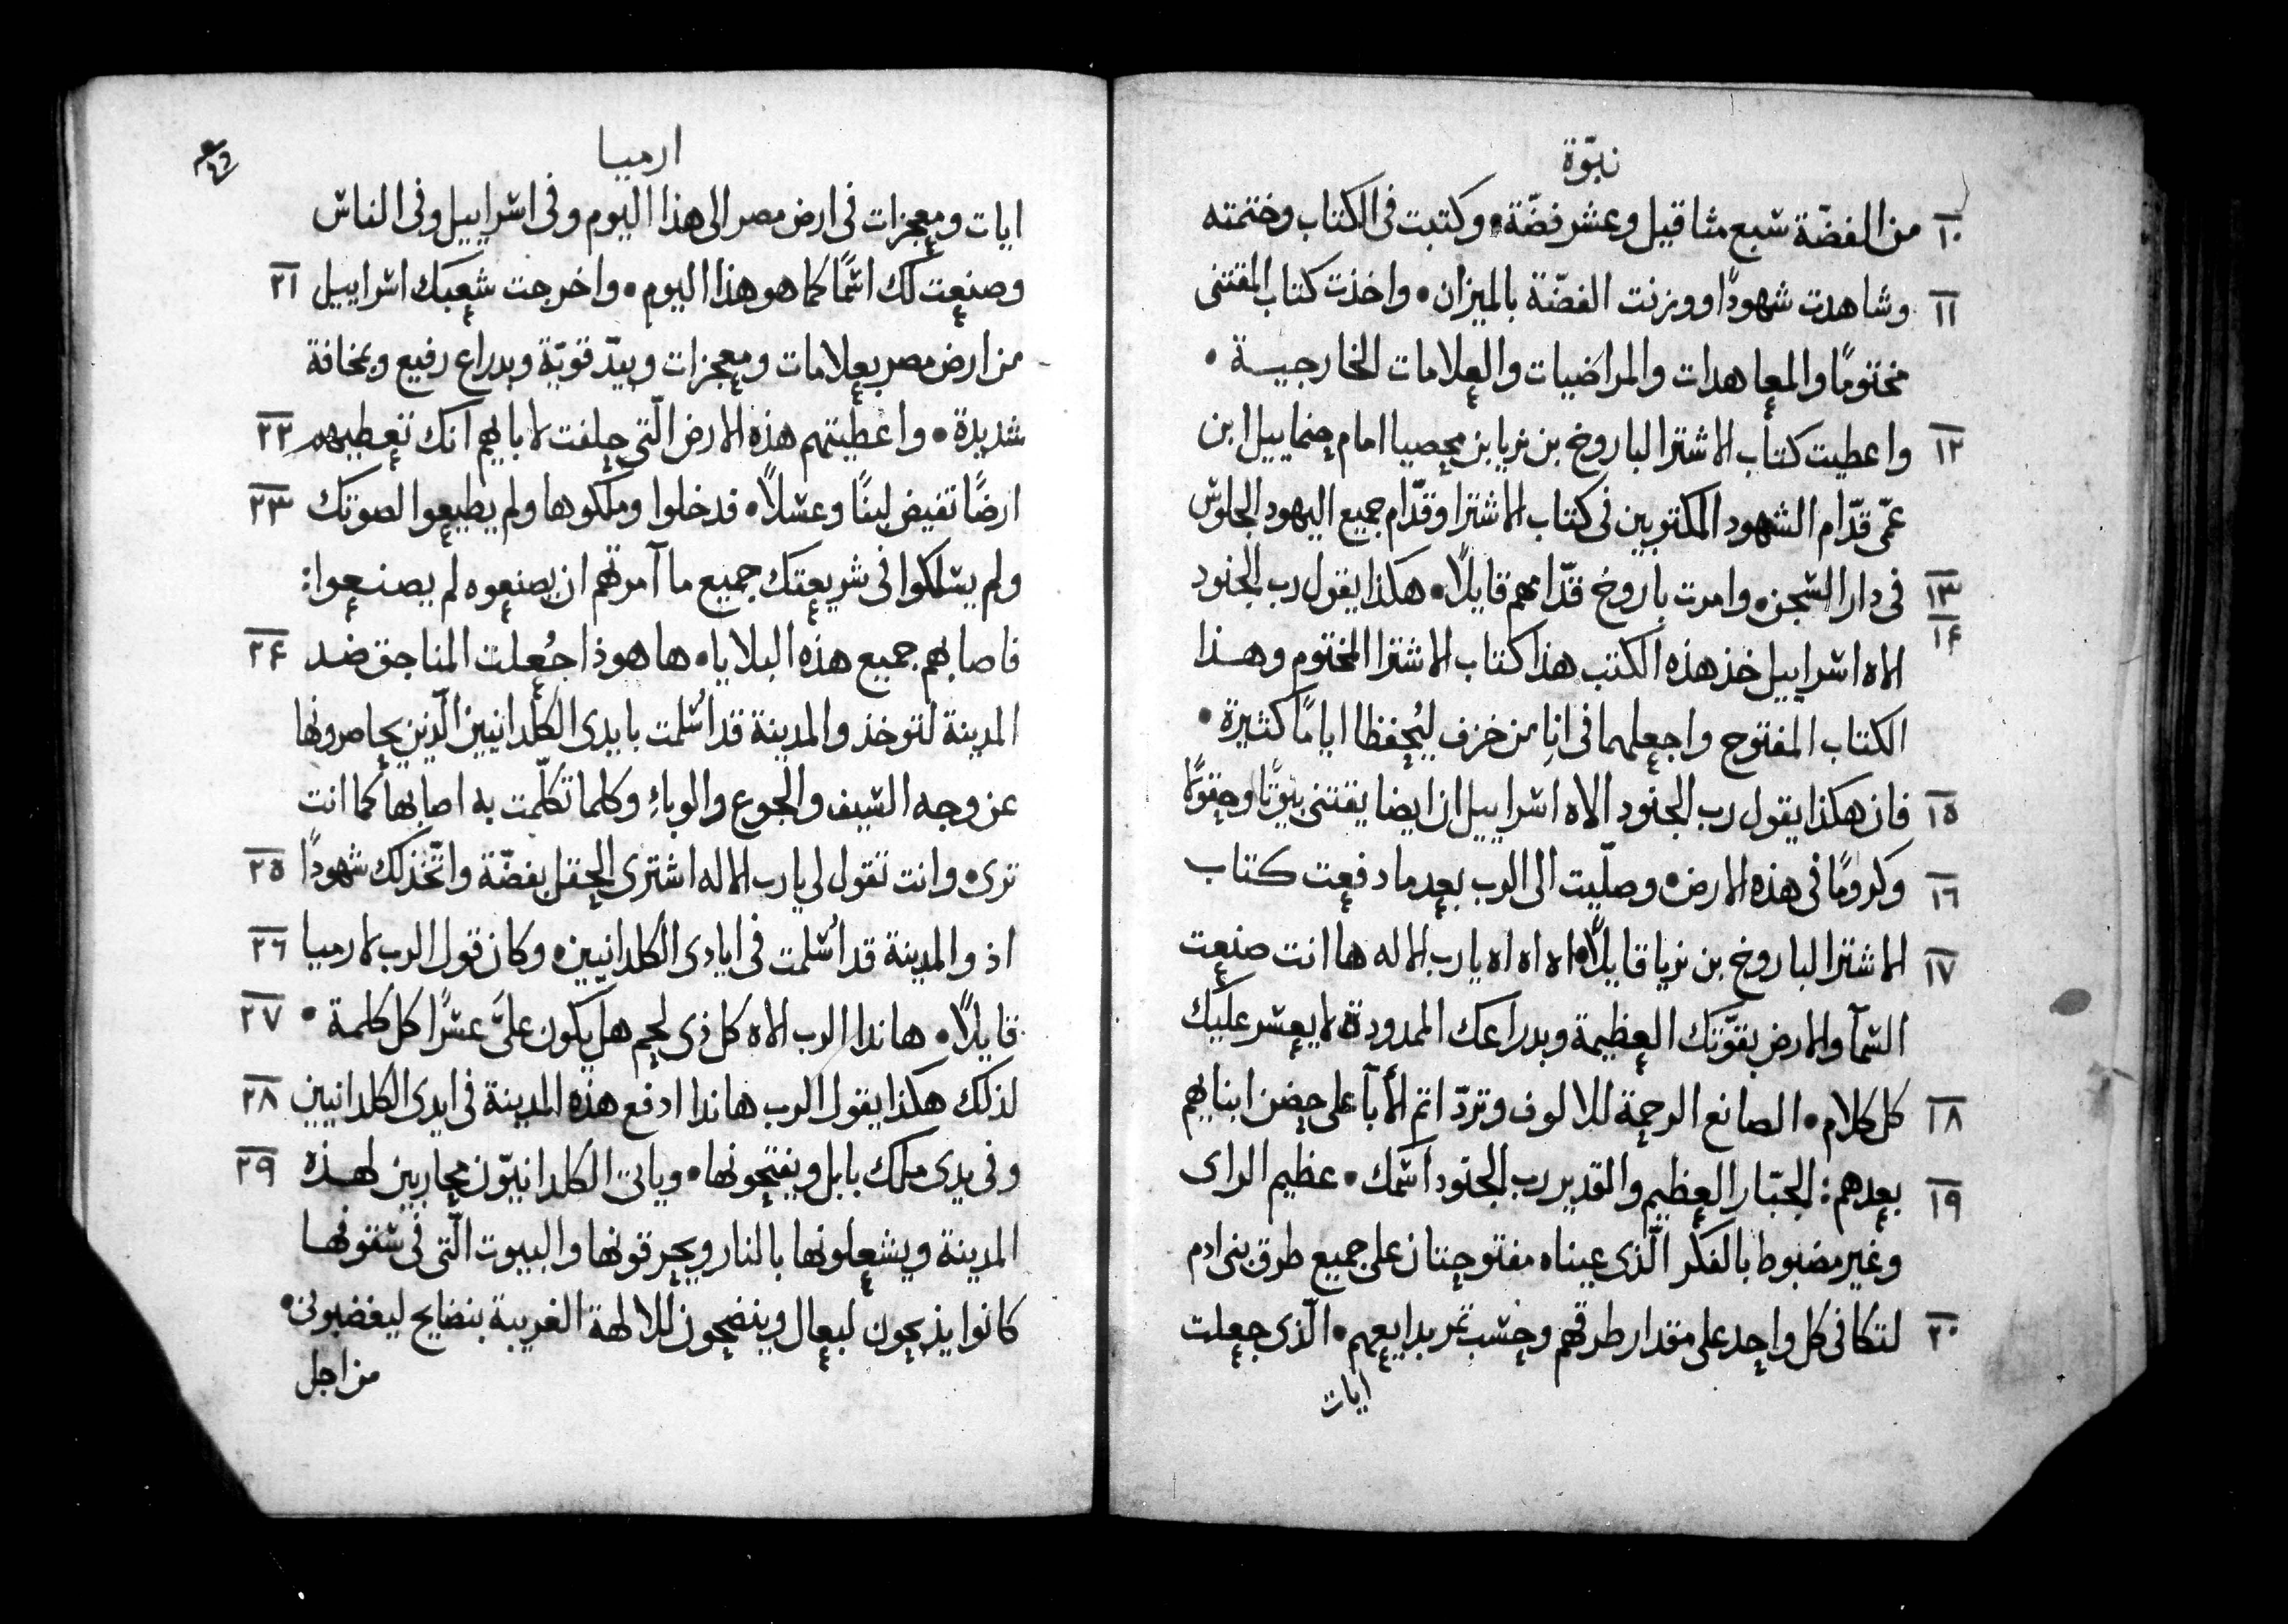 نبوّة
١٠ من الفضّة شبع مثاقيل وعشر فضّة • وكتبت فى الكتاب وختمته
١١ وشاهدت شهودًا ووزنت الفضّة بالميزان • واخذت كتاب المقتنى
مختومًا والمعاهدات والمراضيات والعلامات الخارجيـة •
١٢ واعطيت كتاب الاشترا لباروخ بن نريا بن محصيا امام حنماييل ابن
عمّى قدّام الشهود المكتوبين فى كتاب الاشترا وقدّام جميع اليهود الجلوش
١٣ فى دار الشجن • وامرت باروخ قدّامهم قايلًا • هكذا يقول رب الجنود
١٤ الاه اشراييل خذ هذه الكتب هذا كتاب الاشترا المختوم وهـذا
الكتاب المفتوح واجعلهما فى اناٍ من خزف ليُحفظا ايامًا كثيرة •
١٥ فان هكذا يقول رب الجنود الاه اشراييل ان ايضا يقتنى بيوتًا وحقولًا
١٦ وكرومًا فى هذه الارض • وصلّيت الى الرب بعد ما دفعت كتاب
١٧ الاشترا لباروخ بن نريا قايلًا • اه اه اه يارب الاله ها انت صنعت
الشمآ والارض بقوّتك العظيمة وبدراعك الممدودة لا يعشر عليك
١٨ كل كلام • الصانع الرحمة للالوف وتردّ اثم الأبآ على حضن ابنايهم
١٩ بعدهم : الجبّار العظيم والقدير رب الجنود اشمك • عظيم الراى
وغير مضبوط بالفكر الّذى عيناه مفتوحتان على جميع طرق بنى ادم
٢٠ لتكافى كل واحد على مقدار طرقهم وحشب ثمر بدايعهم • الّذى جعلت
ايات
ارميـا
ايات ومعجزات فى ارض مصر الى هذا اليوم وفى اشراييل وفى الناش
٢١ وصنعت لك اشمًا كما هو هذا اليوم • واخرجت شعبَك اشراييل
من ارض مصر بعلامات ومعجزات وبيدّ قويّة وبدراع رفيع وبمخافة
٢٢ شديدة • واعطيتهم هذه الارض الّتى حلفت لابايهم انك تعطيهم
٢٣ ارضًا تفيض لبنًا وعشلًا • فدخلوا وملكوها ولم يطيعوا لصوتك
ولم يشلكوا فى شريعتك جميع ما آمرتهم ان يصنعوه لم يصنـعوا :
٢٤ فاصابهم جميع هذه البلايا • ها هوذا جُعلت المناجق ضـد
المدينة لتوخذ والمدينة قد اشلمت بايدى الكلدانيين الّذين يحاصرونها
عن وجه الشيف والجوع والوباءِ وكلما تكلّمت به اصابها كما انت
٢٥ ترى • وانت تقول لى يارب الاله اشترى الحقل بفضّة واتّخذ لك شهودًا
٢٦ اذ والمدينة قد اُشلمت فى ايادى الكلدانيين • وكان قول الرب لارميا
٢٧ قايلًا • هانذا الرب الاه كل ذى لحم هل يكون علىَّ عشرًا كل كلمة •
٢٨ لذلك هكذا يقول الرب هانذا ادفع هذه المدينة فى ايدى الكلدانيين
٢٩ وفى يدى ملك بابل ويفتحونها • وياتى الكلدانيّون محاربين لهـذه
المدينة ويشعلونها بالنار ويحرقونها والبيوت الّتى فى شقوفهـا
كانوا يذبحون لبعال وينضحون للالهة الغريبة بنضايح ليغضبونى •
من اجل